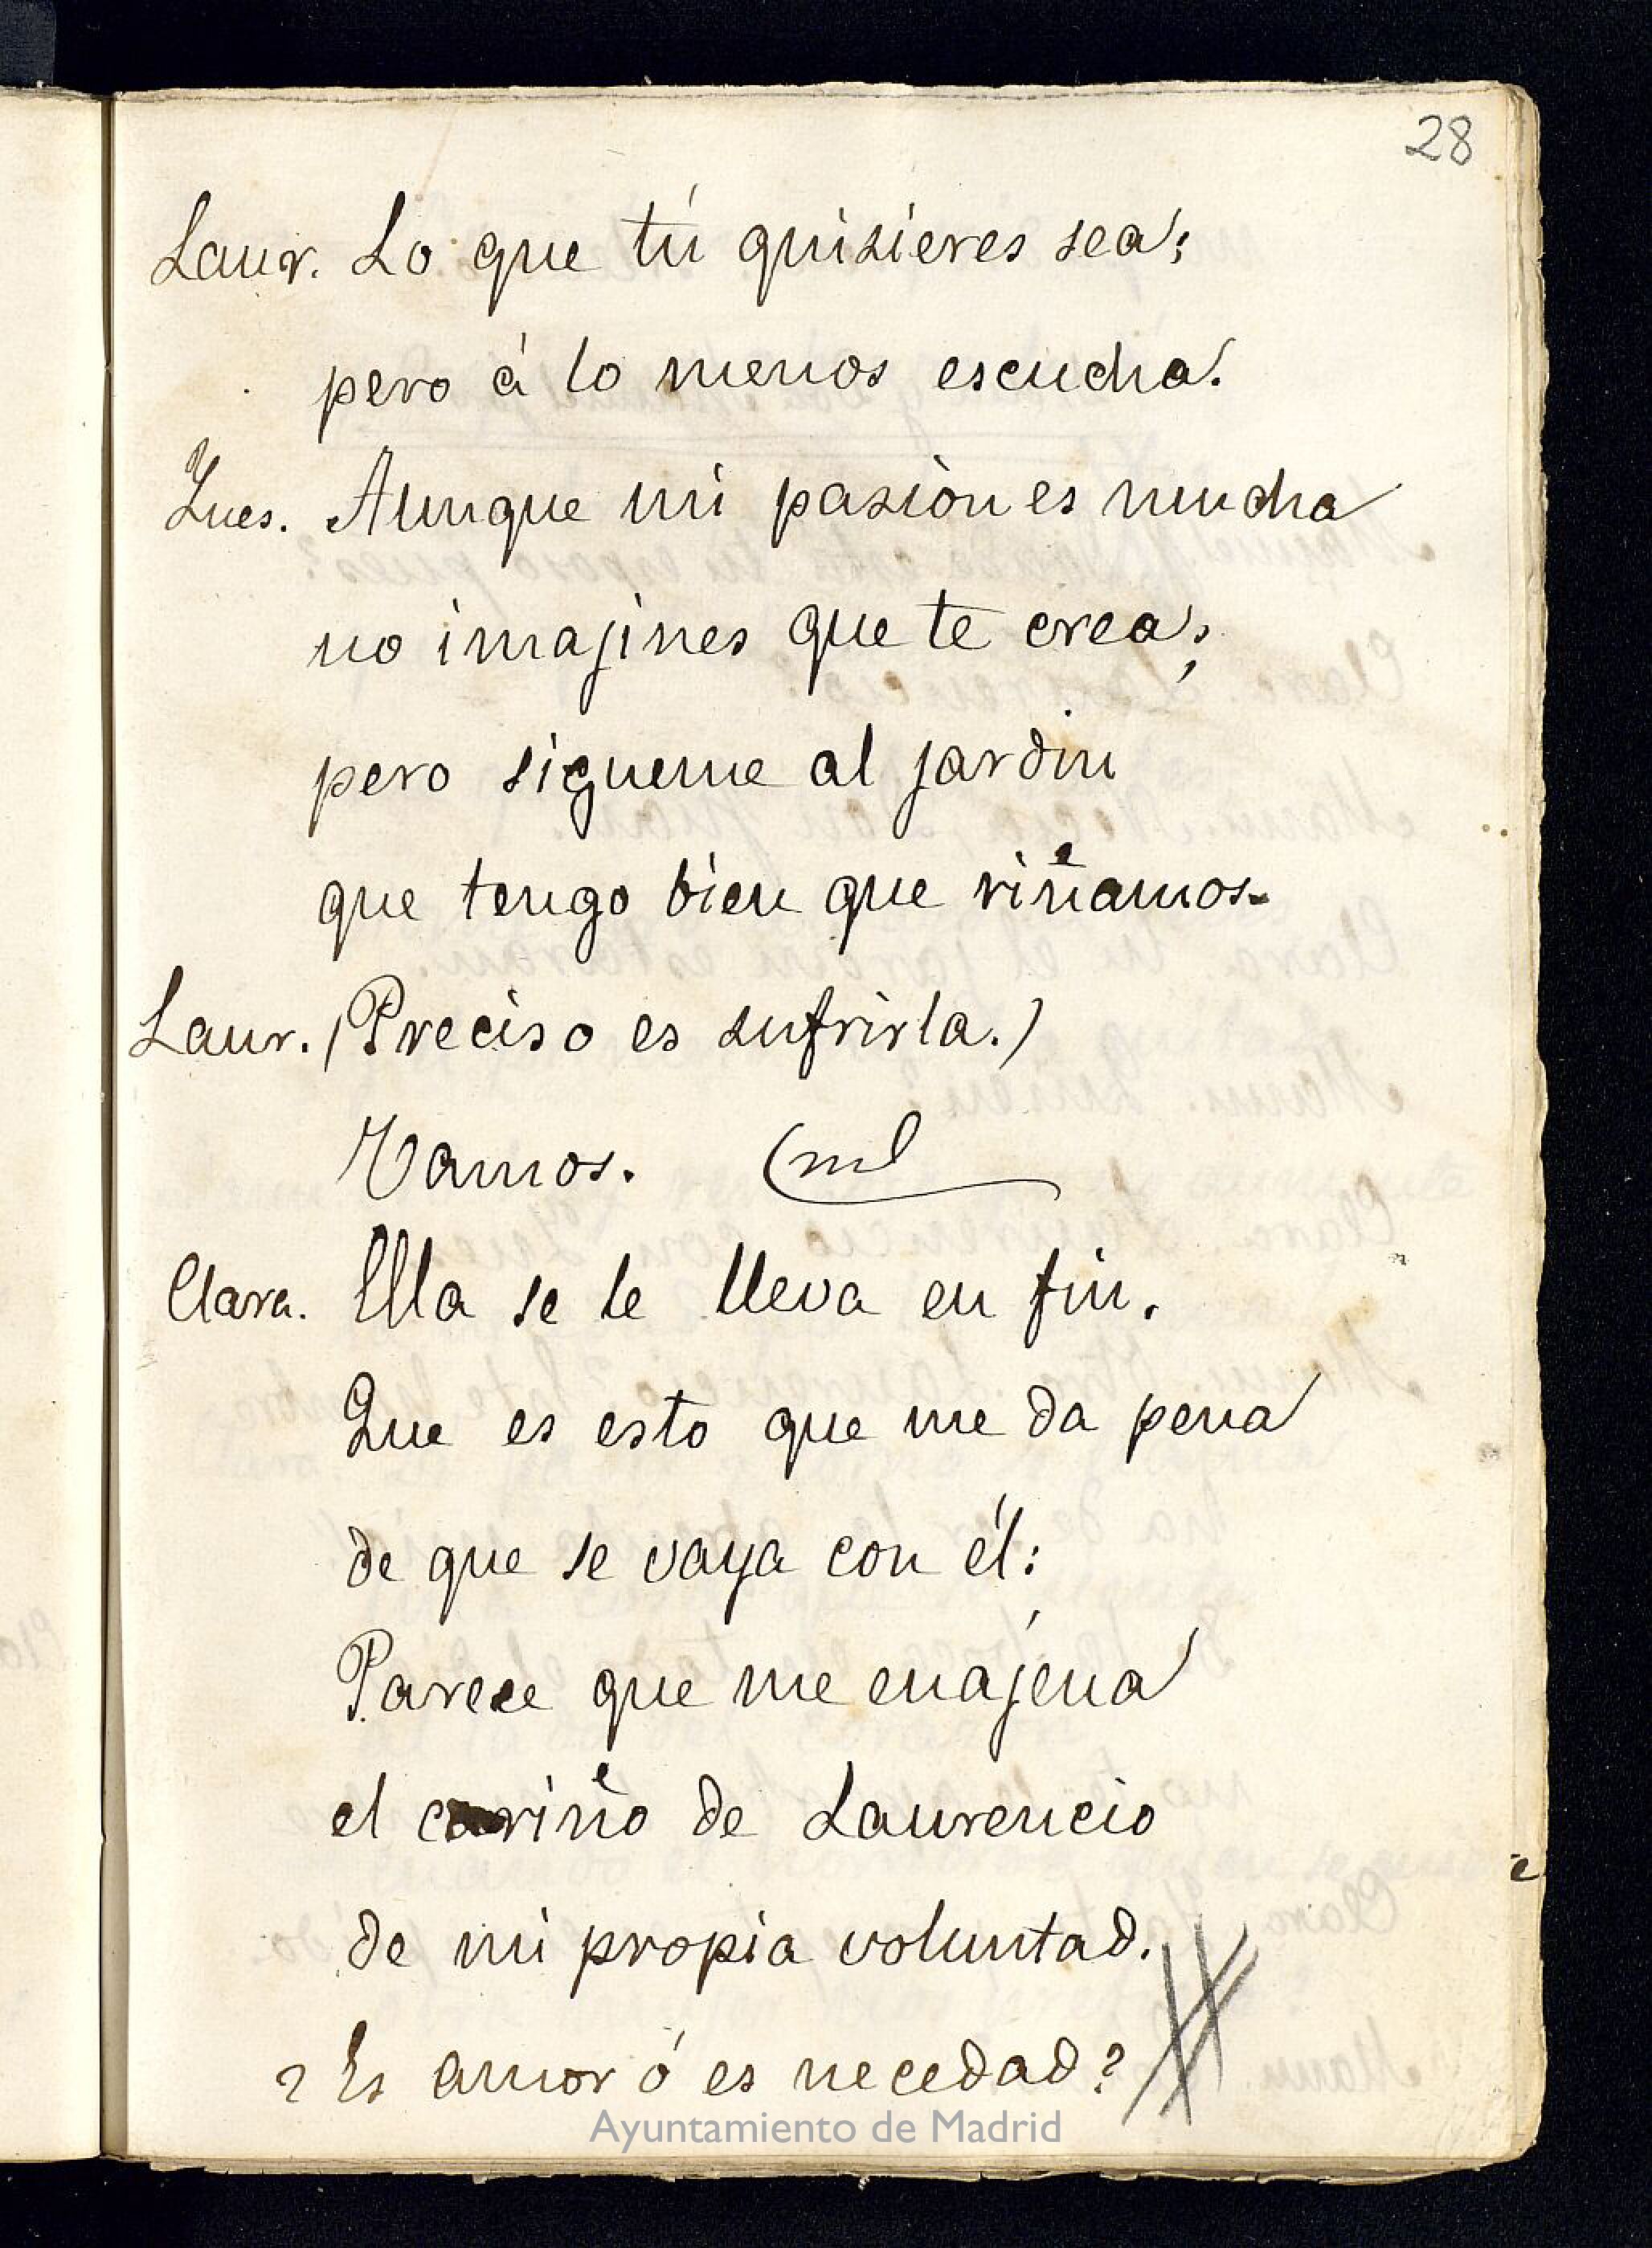 28
Laur. Lo que tú quisieres sea;
pero á lo menos escucha.
Ynes. Aunque mi pasión es mucha
no imajines que te crea;
pero sigueme al jardin
que tengo bien que riñamos.
Laur. (Preciso es sufrirla.)
Vamos.
Clara. Ella se le lleva en fin.
Que es esto que me da pena
de que se vaya con él:
Parece que me enajena
el cariño de Laurencio
de mi propia voluntad.
¿Es amor ó es necedad?
Ayuntamiento de Madrid